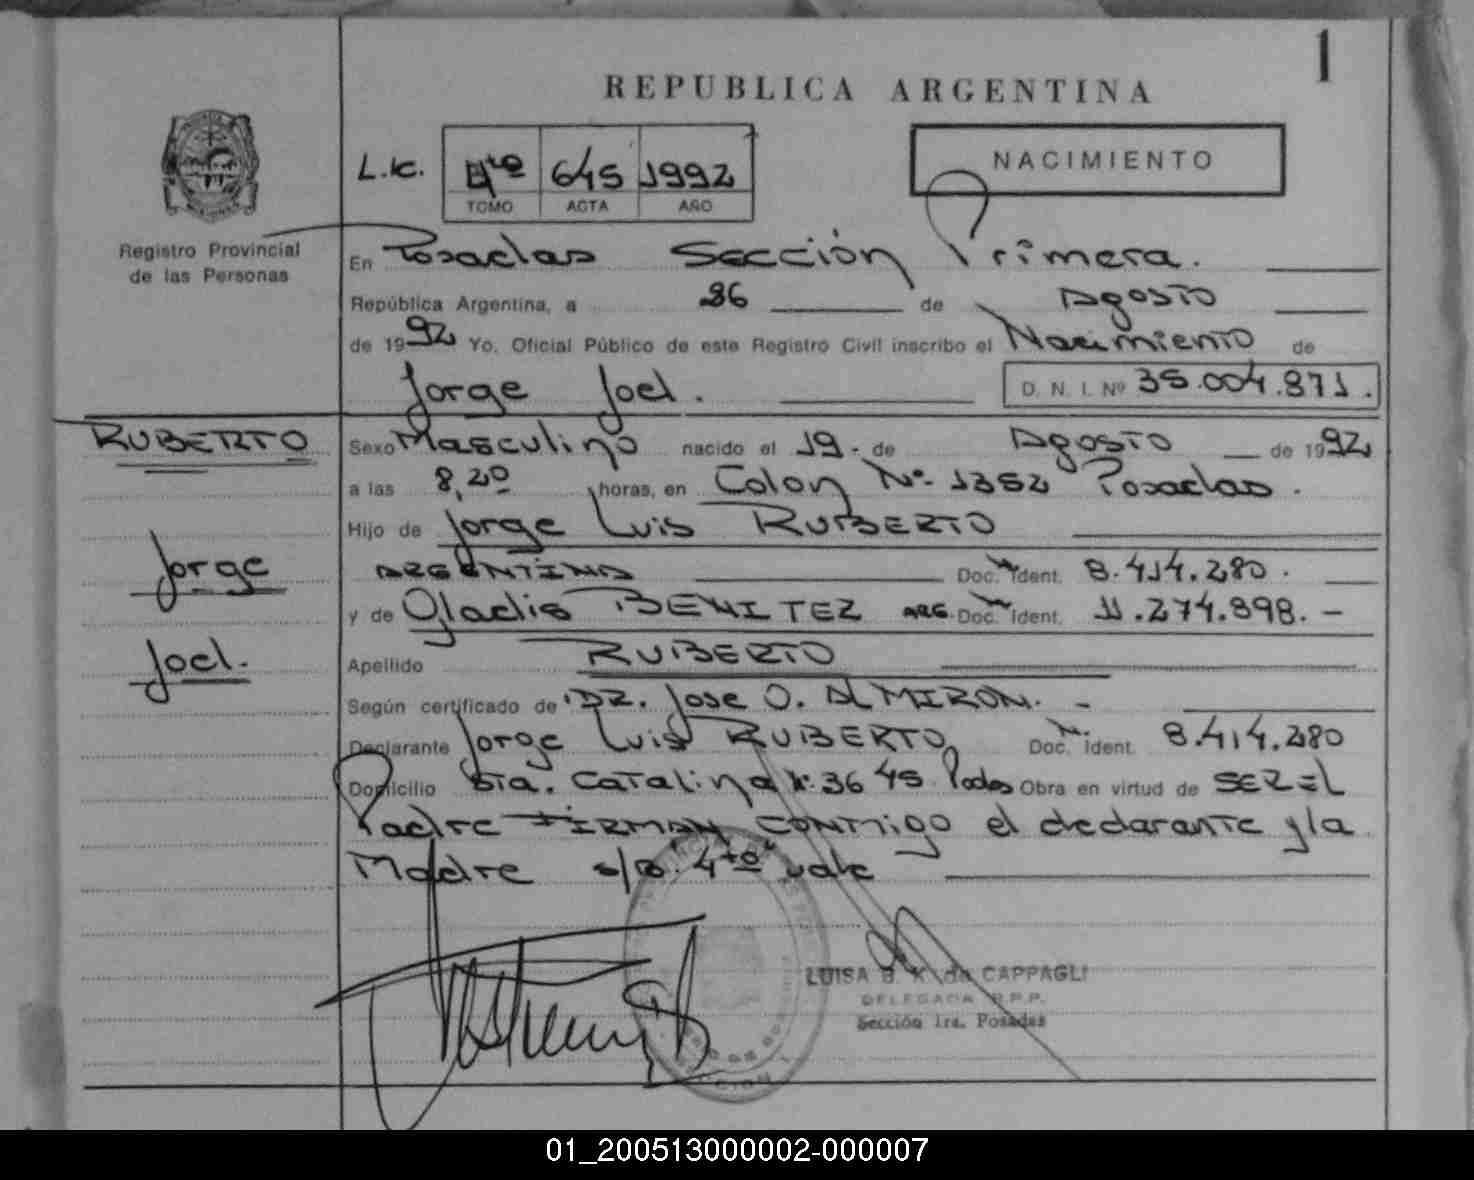 1
REPUBLICA ARGENTINA
L.K. 4to 645 1992
TOMO ACTA AÑO
NACIMIENTO
Registro Provincial
de las Personas
En Posadas Sección Primera.
República Argentina, a 26 de Agosto
de 1992 Yo, Oficial Público de este Registro Civil inscribo el Nacimiento de
Jorge Joel. D. N. I. Nº 35.004.871.
RUBERTO
Sexo Masculino nacido el 19. de Agosto de 1992
a las 8,20 horas, en Colon Nº 1352 Posadas.
Hijo de Jorge Luis RUBERTO
Jorge
ARGENTINO Doc. Ident. 8.414.280.
y de Gladis BENITEZ ARG. Doc. Ident. 11.274.898.-
Joel.
Apellido RUBERTO
Según certificado de DR. Jose O. ALMIRON. -
Declarante Jorge Luis RUBERTO Doc. Ident. 8.414.280
Domicilio Sta. Catalina Nº 3645 Pdas Obra en virtud de SER EL
Padre FIRMAN CONMIGO el declarante y la
Madre s/b. 4to vale
LUISA B. K. de CAPPAGLI
DELEGADA R.P.P.
Sección 1ra. Posadas
01_200513000002-000007